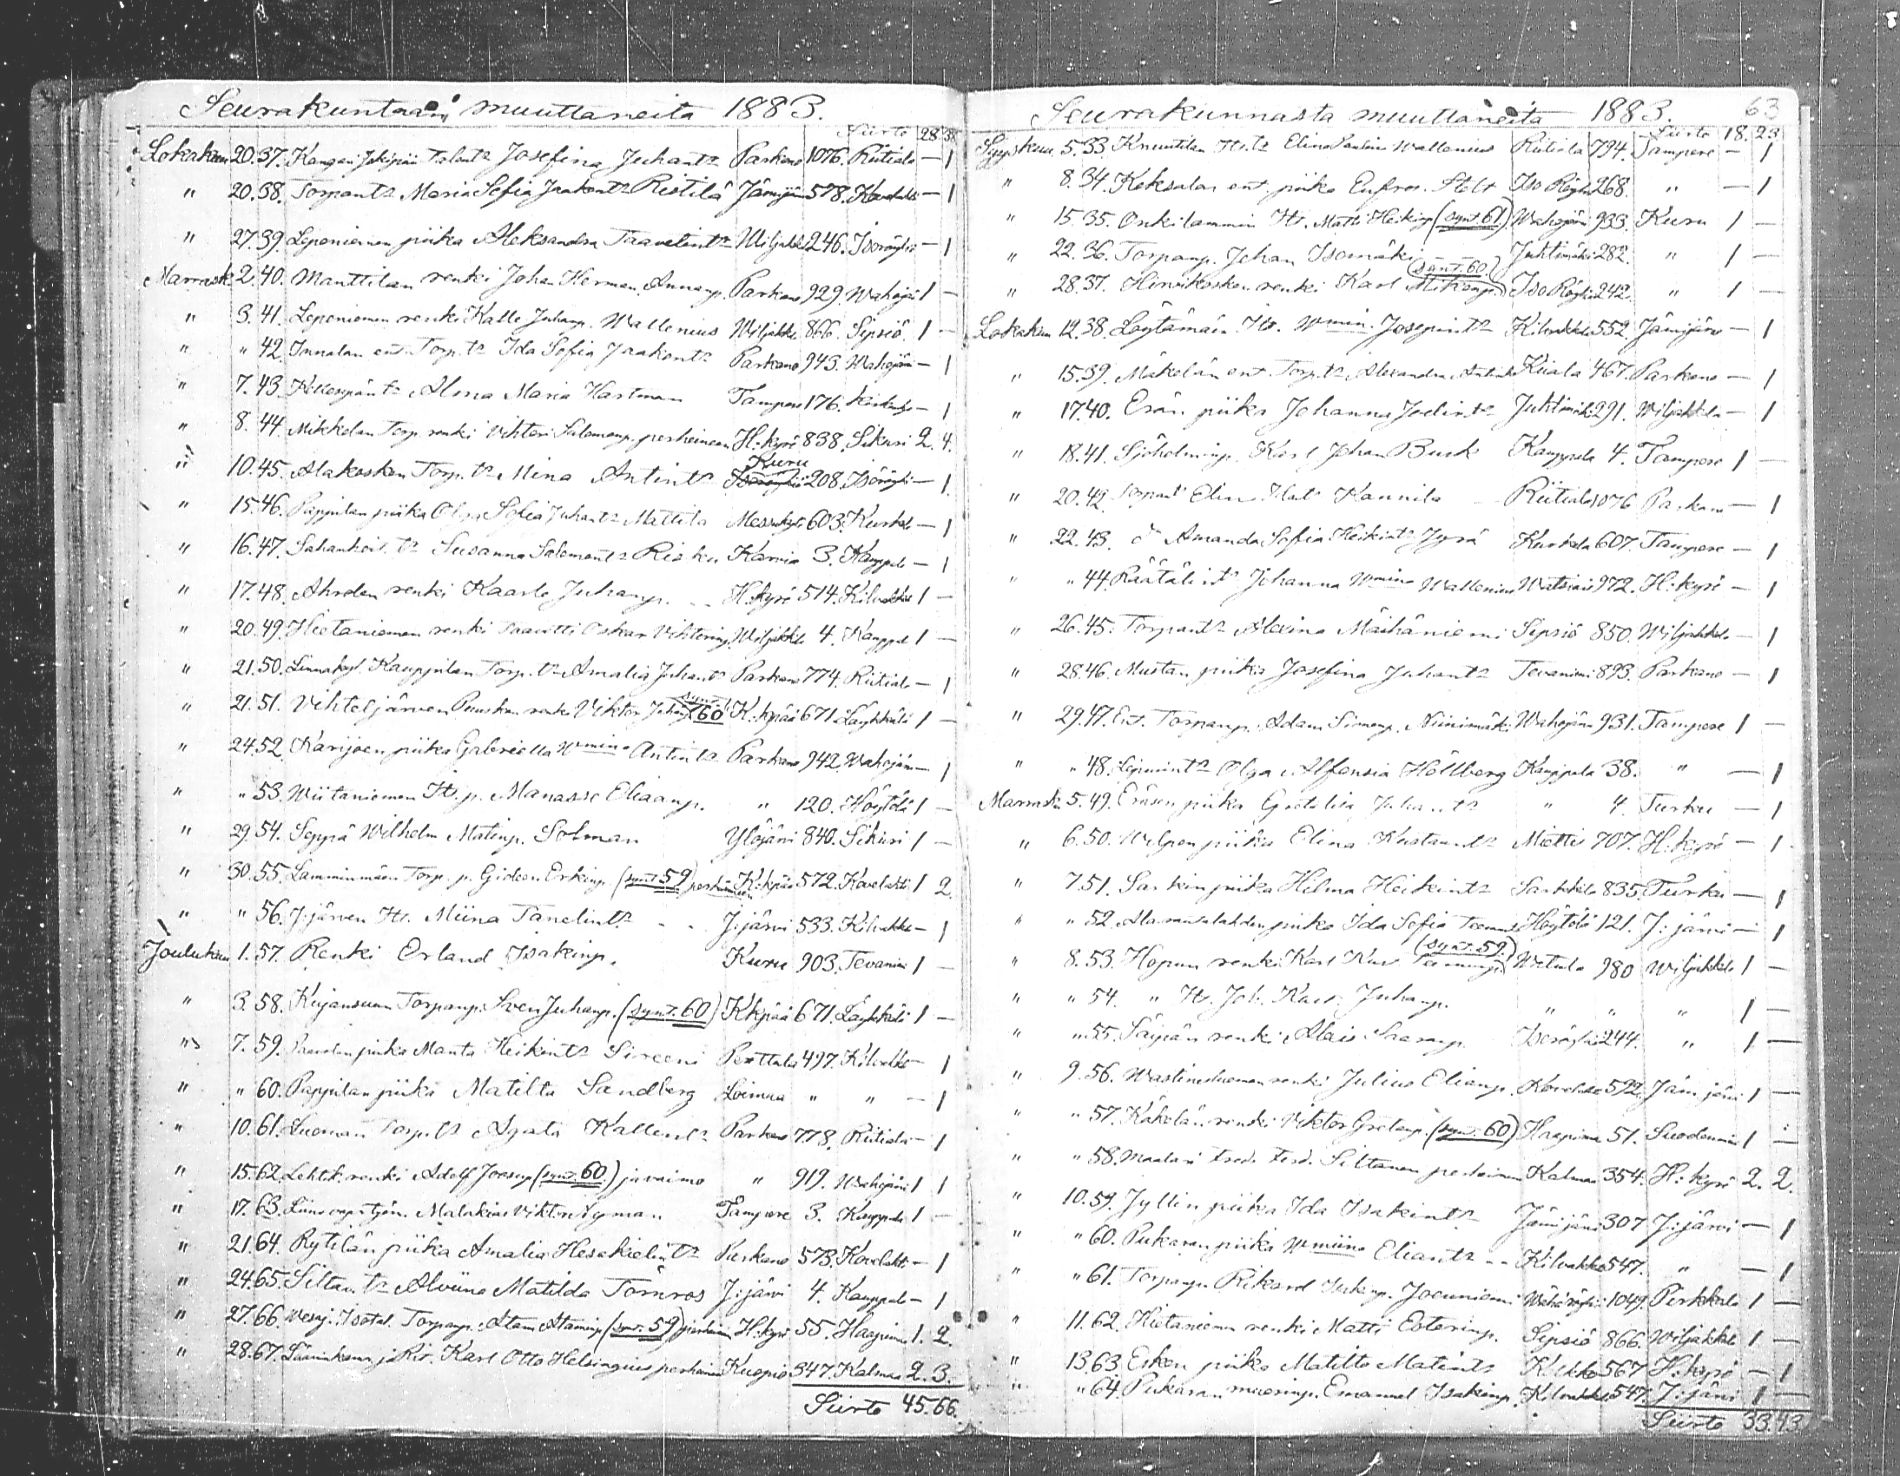 Seurakuntaan muuttaneita 1883.
Siirto 28.38
Lokakuun 20. 37. Kangan Jokipään Talont:r Josefina Juhant:r Parkano 1076. Riitiala — 1
" 20. 38. Torpant:r Maria Sofia Jaakont:r Ristilä Jämijärvi 578. — 1
" 27. 39. Leponiemen piika Aleksandra Taavetint:r Wiljakkala 246. Isoröyhiö — 1
Marrask. 2. 40. Manttilan renki Johan Herman Annanp. Parkano 929. Wahojär. 1 —
" 3. 41. Leponiemen renki Kalle Juhanp. Wallenius Wiljakkala 866. Sipsiö 1 —
" " 42. Innalan ent. Torp. t:r Ida Sofia Jaakont:r Parkano 943. Wahojärvi — 1
" 7. 43. Alma Maria Hartman Tampere 176. — 1
" 8. 44. Mikkolan Torp. renki Vihtori Salomonp. perheineen H:kyrö 838. Sikuri 2. 4.
" 10. 45. Alakosken Torp. t:r Miina Antint:r Kuru 208. Isoröyhiö — 1.
" 15. 46. Pappilan piika Olga Sofia Juhant:r Mattila Messukylä 603. Kurkela — 1
" 16. 47. Susanna Salomont:r Risku Karvia 3. Kauppala — 1
" 17. 48. Ahrolan renki Kaarlo Juhanp. H:kyrö 514. Kilvakkala 1 —
" 20. 49. Hietaniemen renki Taavetti Oskar Vihtorinp. Wiljakkala 4. Kauppala 1 —
" 21. 50. Linnankyl. Kauppilan Torp. t:r Amalia Juhant:r Parkano 774. Riitiala — 1
" 21. 51. Vihteljärven renki Viktor Juhanp. (synt. 60) K:kpää 671. Läykkälä 1 —
" 24. 52. Karijoen piika Gabriella Wmina Antint:r Parkano 942. Wahojärvi — 1
" " 53. Wiitaniemen It. p. Manasse Eliaanp. " 120. Höytölä 1 —
" 29. 54. Seppä Wilhelm Matinp. Solman Ylöjärvi 840. Sikuri 1 —
" 30. 55. Lamminmäen Torp. p. Gideon Erkinp. (synt. 59) perheineen K:kpää 572. Kovelahti 1 2.
" " 56. J:järven It. Miina Tanelint:r J:järvi 533. Kilvakkala — 1
Joulukuun 1. 57. Renki Erland Isakinp. Kuru 903. Tevaniemi 1 —
" 3. 58. Kujansuun Torpanp. Sven Juhanp. (synt. 60) K:kpää 671. Läykkälä 1 —
" 7. 59. piika Manta Heikint:r Sireeni Perttula 497. Kilvakkala — 1
" " 60. Pappilan piika Matilta Sandberg Loimaa " " — 1
" 10. 61. Luoman Torp. t:r Agata Kallent:r Parkano 778. Riitiala — 1
" 15. 62. renki Adolf Joosep. (synt. 60) ja vaimo " 919. Wahojärvi 1 1
" 17. 63. Malakias Viktor Nyman Tampere 3. Kauppala 1 —
" 21. 64. Rytilän piika Amalia Hesekielint:r Parkano 573. Kovelahti — 1
" 24. 65. Alviina Matilda Törnros J:järvi 4. Kauppala — 1
" 27. 66. Torpanp. Atam Ataminp. (synt. 59) perheineen H:kyrö 55. Haapimaa 1. 2.
" 28. 67. Karl Otto Helsingius perheineen Kuopio 347. Kalmaa 2. 3.
Siirto 45. 66.
Seurakunnasta muuttaneita 1883. 63
Siirto 18. 23
Syyskuu 5. 33. Knuutilan It. t:r Elina Pauliina Wallenius Riitiala 794. Tampere — 1
" 8. 34. Keksalan ent. piika Eufros. Stolt Iso Röyhiö 268. " — 1
" 15. 35. Onkilammin It. Matti Heikinp. (synt. 61) Wahojärvi 933. Kuru 1 —
" 22. 36. Torpanp. Johan Isomäki Juhtimäki 282. " 1 —
" 28. 37. Hirvikosken renki Karl Mikonp. (synt. 60.) Iso Röyhiö 242. " 1 —
Lokakuu 12. 38. Löytämän It. Wmina Josepint:r Kilvakkala 552. Jämijärvi — 1
" 15. 39. Mäkelän ent. Torp. t:r Alexandra Kiiala 467. Parkano — 1
" 17. 40. Erän piika Johanna Joelint:r Juhtimäki 291. Wiljakkala — 1
" 18. 41. Karl Johan Busk Kauppala 4. Tampere 1 —
" 20. 42. Torpant:r Elin Kannila Riitiala 1076 Parkano — 1
" 22. 43. d:o Amanda Sofia Heikint:r Jyrä Kurkela 607. Tampere — 1
" " 44. Räätälint:r Johanna Wmina Wallenius 972. H:kyrö — 1
" 26. 45. Torpant:r Alviina Mäihäniemi Sipsiö 850. Wiljakkala — 1
" 28. 46. Mustan piika Josefina Juhant:r Tevaniemi 893. Parkano — 1
" 29. 47. Ent. Torpanp. Adam Simonp. Niinimäki Wahojärvi 931. Tampere 1 —
" " 48. Olga Alfonsia Hellberg Kauppala 38. " — 1
Marrask. 5. 49. Eräsen piika " 4. Turku — 1
" 6. 50. piika Elina Kustaant:r Miettis 707. H:kyrö — 1
" 7. 51. Sarkin piika Hilma Heikint:r Sarkkila 835. Turku — 1
" " 52. piika Ida Sofia Höytölä 121. J:järvi — 1
" 8. 53. Hopun renki Karl (synt. 59) Wetula 980 Wiljakkala 1 —
" " 54. " It. Joh. Karl Juhanp. " " " 1 —
" " 55. renki Isoröyhiö 244. " 1 —
" 9. 56. renki Julius Elianp. Kovelahti 572. Jämijärvi 1 —
" " 57. Käkelän renki Viktor Gretanp. (synt. 60) Haapimaa 51. Suodenniemi 1 —
" " 58. Maalari Siltanen perheineen Kalmaa 354. H:kyrö 2. 2.
" 10. 59. Jyllin piika Ida Isakint:r Jämijärvi 307 J:järvi — 1
" " 60. Pukaran piika Wmiina Eliant:r Kilvakkala 547. " — 1
" " 61. Torpanp. Rikard Juhanp. Joenniemi 1049. Pirkkala 1 —
" 11. 62. Hietaniemen renki Matti Esterinp. Sipsiö 866. Wiljakkala 1 —
" 13. 63. Esken piika Matilta Matint:r 567 H:kyrö — 1
" " 64. Pukaran Emanuel Isakinp. Kilvakkala 547. J:järvi 1 —
Siirto 33. 43